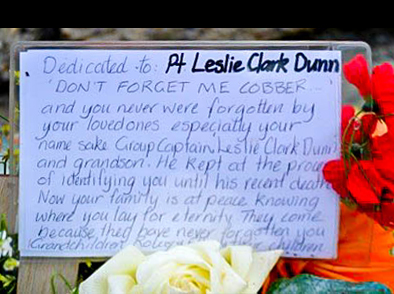 Dedicated to: Pt Leslie Clark Dunn
'DON'T FORGET ME COBBER...
and you never were forgotten by
your lovedones especially your
name sake Group Captain Leslie Clark Dunn
and grandson. He kept at the process
of identifying you until his recent death
Now your family is at peace knowing
where you lay for eternity They come
because they have never forgotten you
Grandchildren children